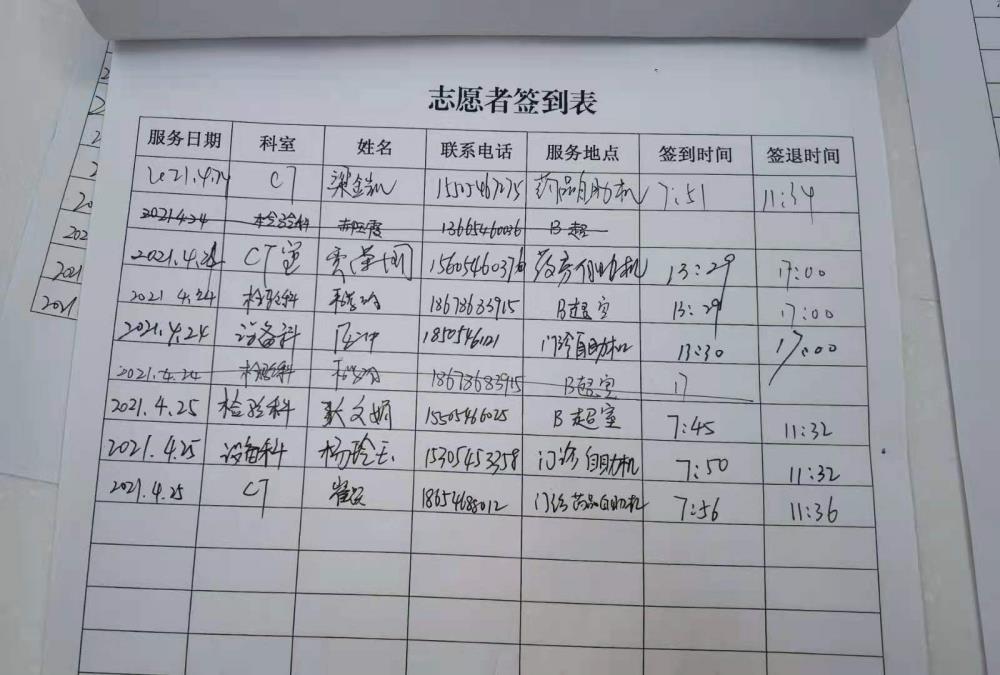 志愿者签到表
服务日期 科室 姓名 联系电话 服务地点 签到时间 签退时间
2021.4.24 CT 15505467275 药品自助机 7:51 11:34
2021 4.24 检验科 13665460036 B超
2021.4.24 CT室 药房自助机 13:29 17:00
2021 4.24 检验科 18678683915 B超室 13:29 17:00
2021.4.24 设备科 门诊自助机 13:30 17:00
2021.4.24 检验科 18678683915 B超室 17
2021.4.25 检验科 耿文娟 15505466025 B超室 7:45 11:32
2021.4.25 设备科 杨玲玉 15305453358 门诊自助机 7:50 11:32
2021.4.25 CT 18654688012 门诊药品自助机 7:56 11:36